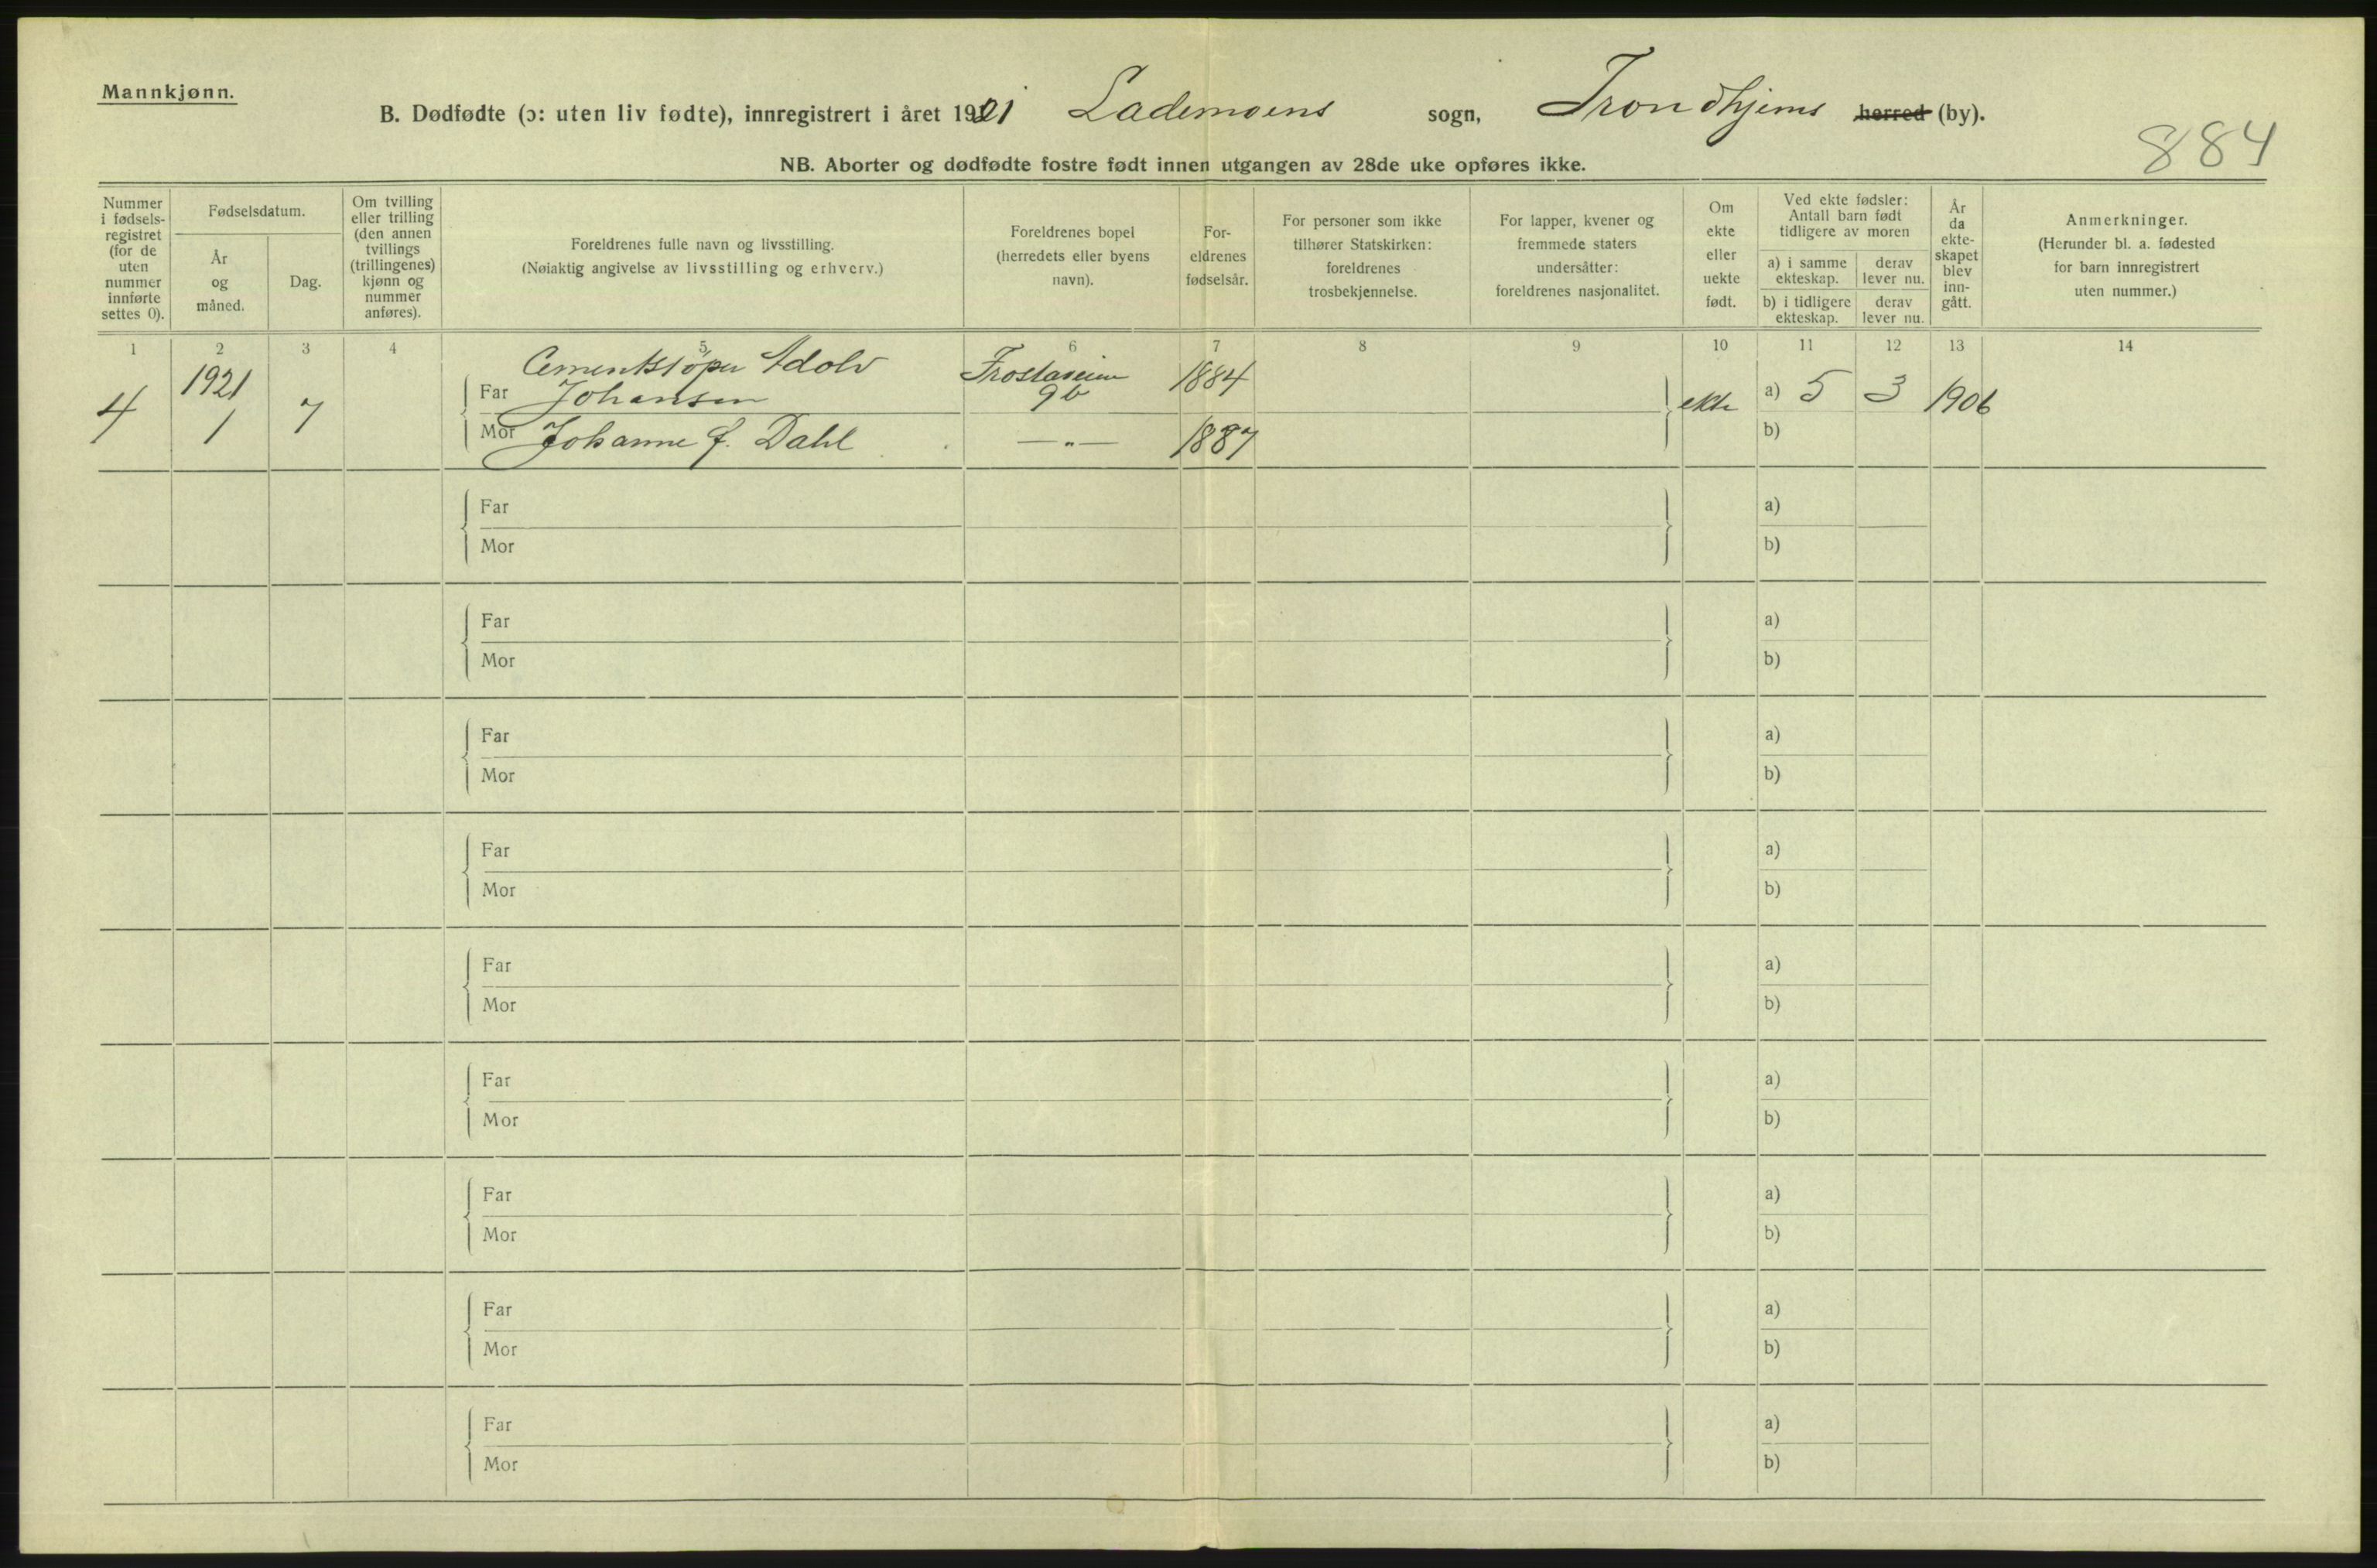 Mannkjønn.
B. Dødfødte (ɔ: uten liv fødte), innregistrert i året 1921 Lademoens sogn, Trondhjems herred (by).
884
NB. Aborter og dødfødte fostre født innen utgangen av 28de uke opføres ikke.
Nummer
i fødsels-
registret
(for de
uten
nummer
innførte
settes 0).
Fødselsdatum.
År
og
måned.
Dag.
Om tvilling
eller trilling
(den annen
tvillings
(trillingenes)
kjønn og
nummer
anføres).
Foreldrenes fulle navn og livsstilling.
(Nøiaktig angivelse av livsstilling og erhverv.)
Foreldrenes bopel
(herredets eller byens
navn).
For-
eldrenes
fødselsår.
For personer som ikke
tilhører Statskirken:
foreldrenes
trosbekjennelse.
For lapper, kvener og
fremmede staters
undersåtter:
foreldrenes nasjonalitet.
Om
ekte
eller
uekte
født.
Ved ekte fødsler:
Antall barn født
tidligere av moren
a) i samme
ekteskap.
derav
lever nu.
b) i tidligere
ekteskap.
derav
lever nu.
År
da
ekte-
skapet
blev
inn-
gått.
Anmerkninger.
(Herunder bl. a. fødested
for barn innregistrert
uten nummer.)
1 2 3 4 5 6 7 8 9 10 11 12 13 14
4 1921 1 7
Cementstøper Adolv
Far Johansen
Frostaveien
9b
1884
ekte a) 5 3 1906
Mor Johanne f. Dahl —„— 1887 b)
Far a)
Mor b)
Far a)
Mor b)
Far a)
Mor b)
Far a)
Mor b)
Far a)
Mor b)
Far a)
Mor b)
Far a)
Mor b)
Far a)
Mor b)
Far a)
Mor b)